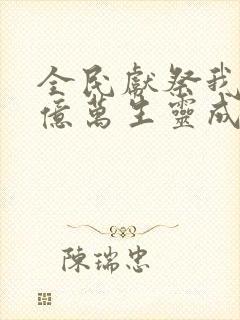 全民獻祭我
億萬生靈成
陳瑞忠